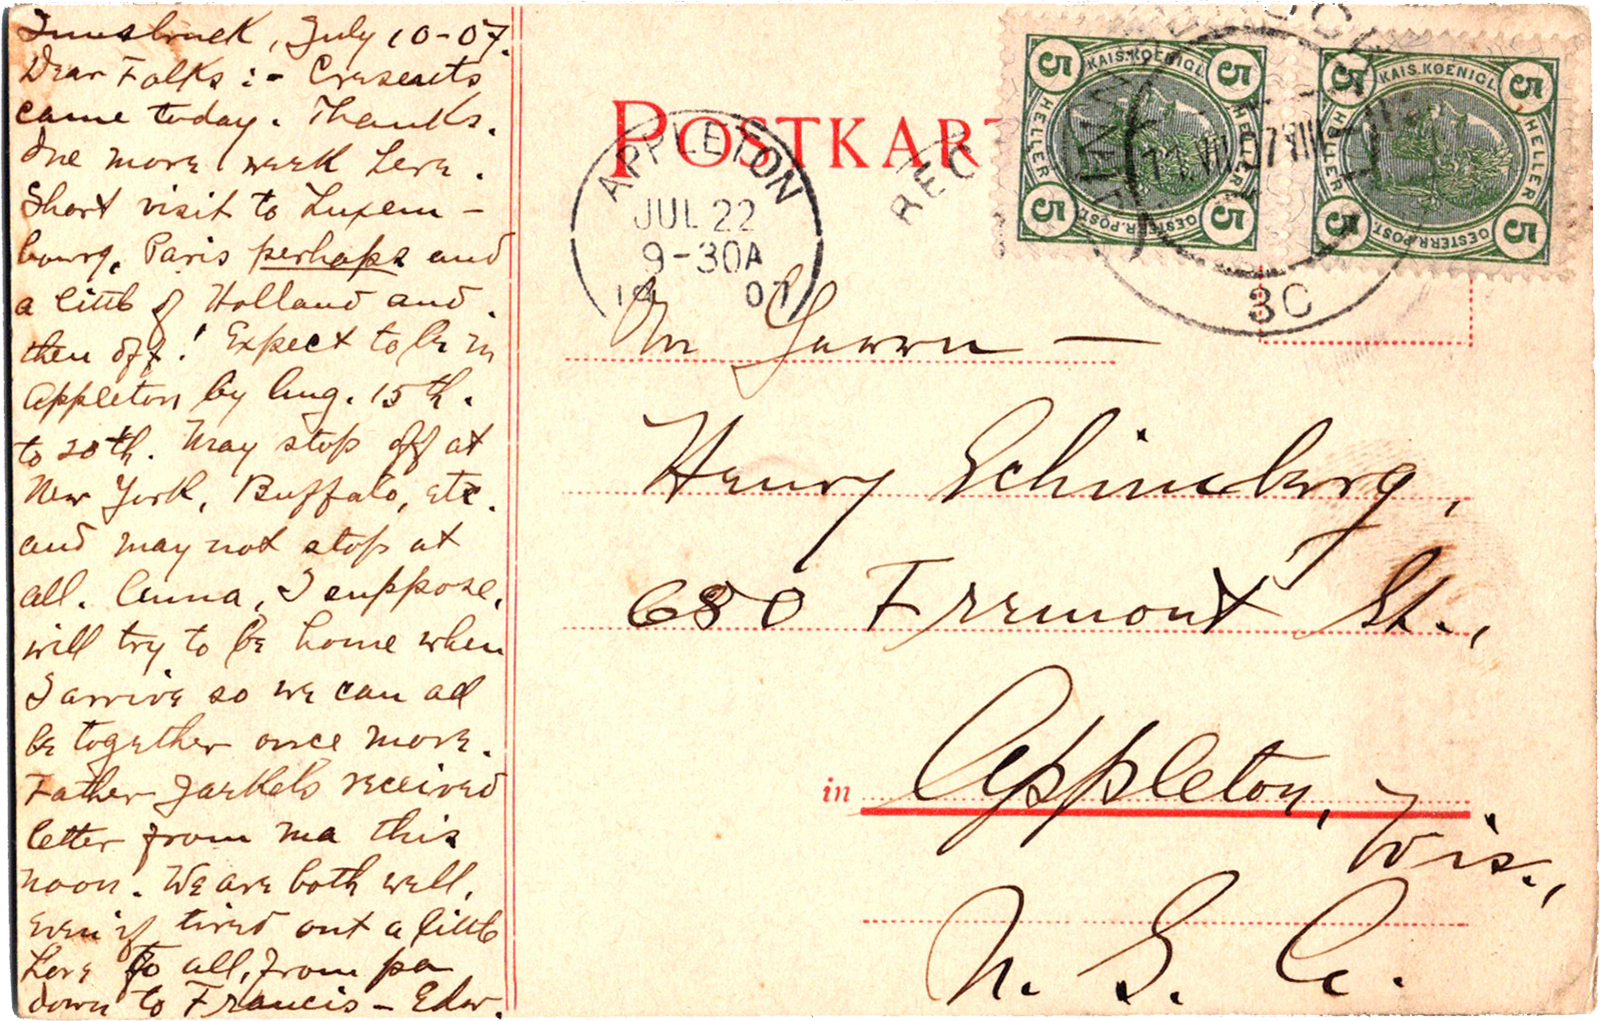 Innsbruck, July 10-07.
Dear Folks :- Creseants
came today. Thanks.
One more week here.
Short visit to Luxem-
bourg, Paris perhaps and
a little of Holland and
then off! Expect to be in
Appleton by Aug. 15th.
to 20th. May stop off at
New York, Buffalo, etc.
and may not stop at
all. Anna, I suppose,
will try to be home when
I arrive so we can all
be together once more.
Father received
letter from ma this
noon. We are both well,
even if tired out a little
Love to all, from pa
down to Francis - Edw.
POSTKAR
APPLETON
JUL 22
9-30A
07
REC
5 KAIS. KOENIGL. 5
HELLER HELLER
5 OESTERR. POST. 5
5 KAIS. KOENIGL. 5
HELLER HELLER
5 OESTERR. POST. 5
11. VII. 07
3C
Henry
680 Fremont St.,
in Appleton, Wis.,